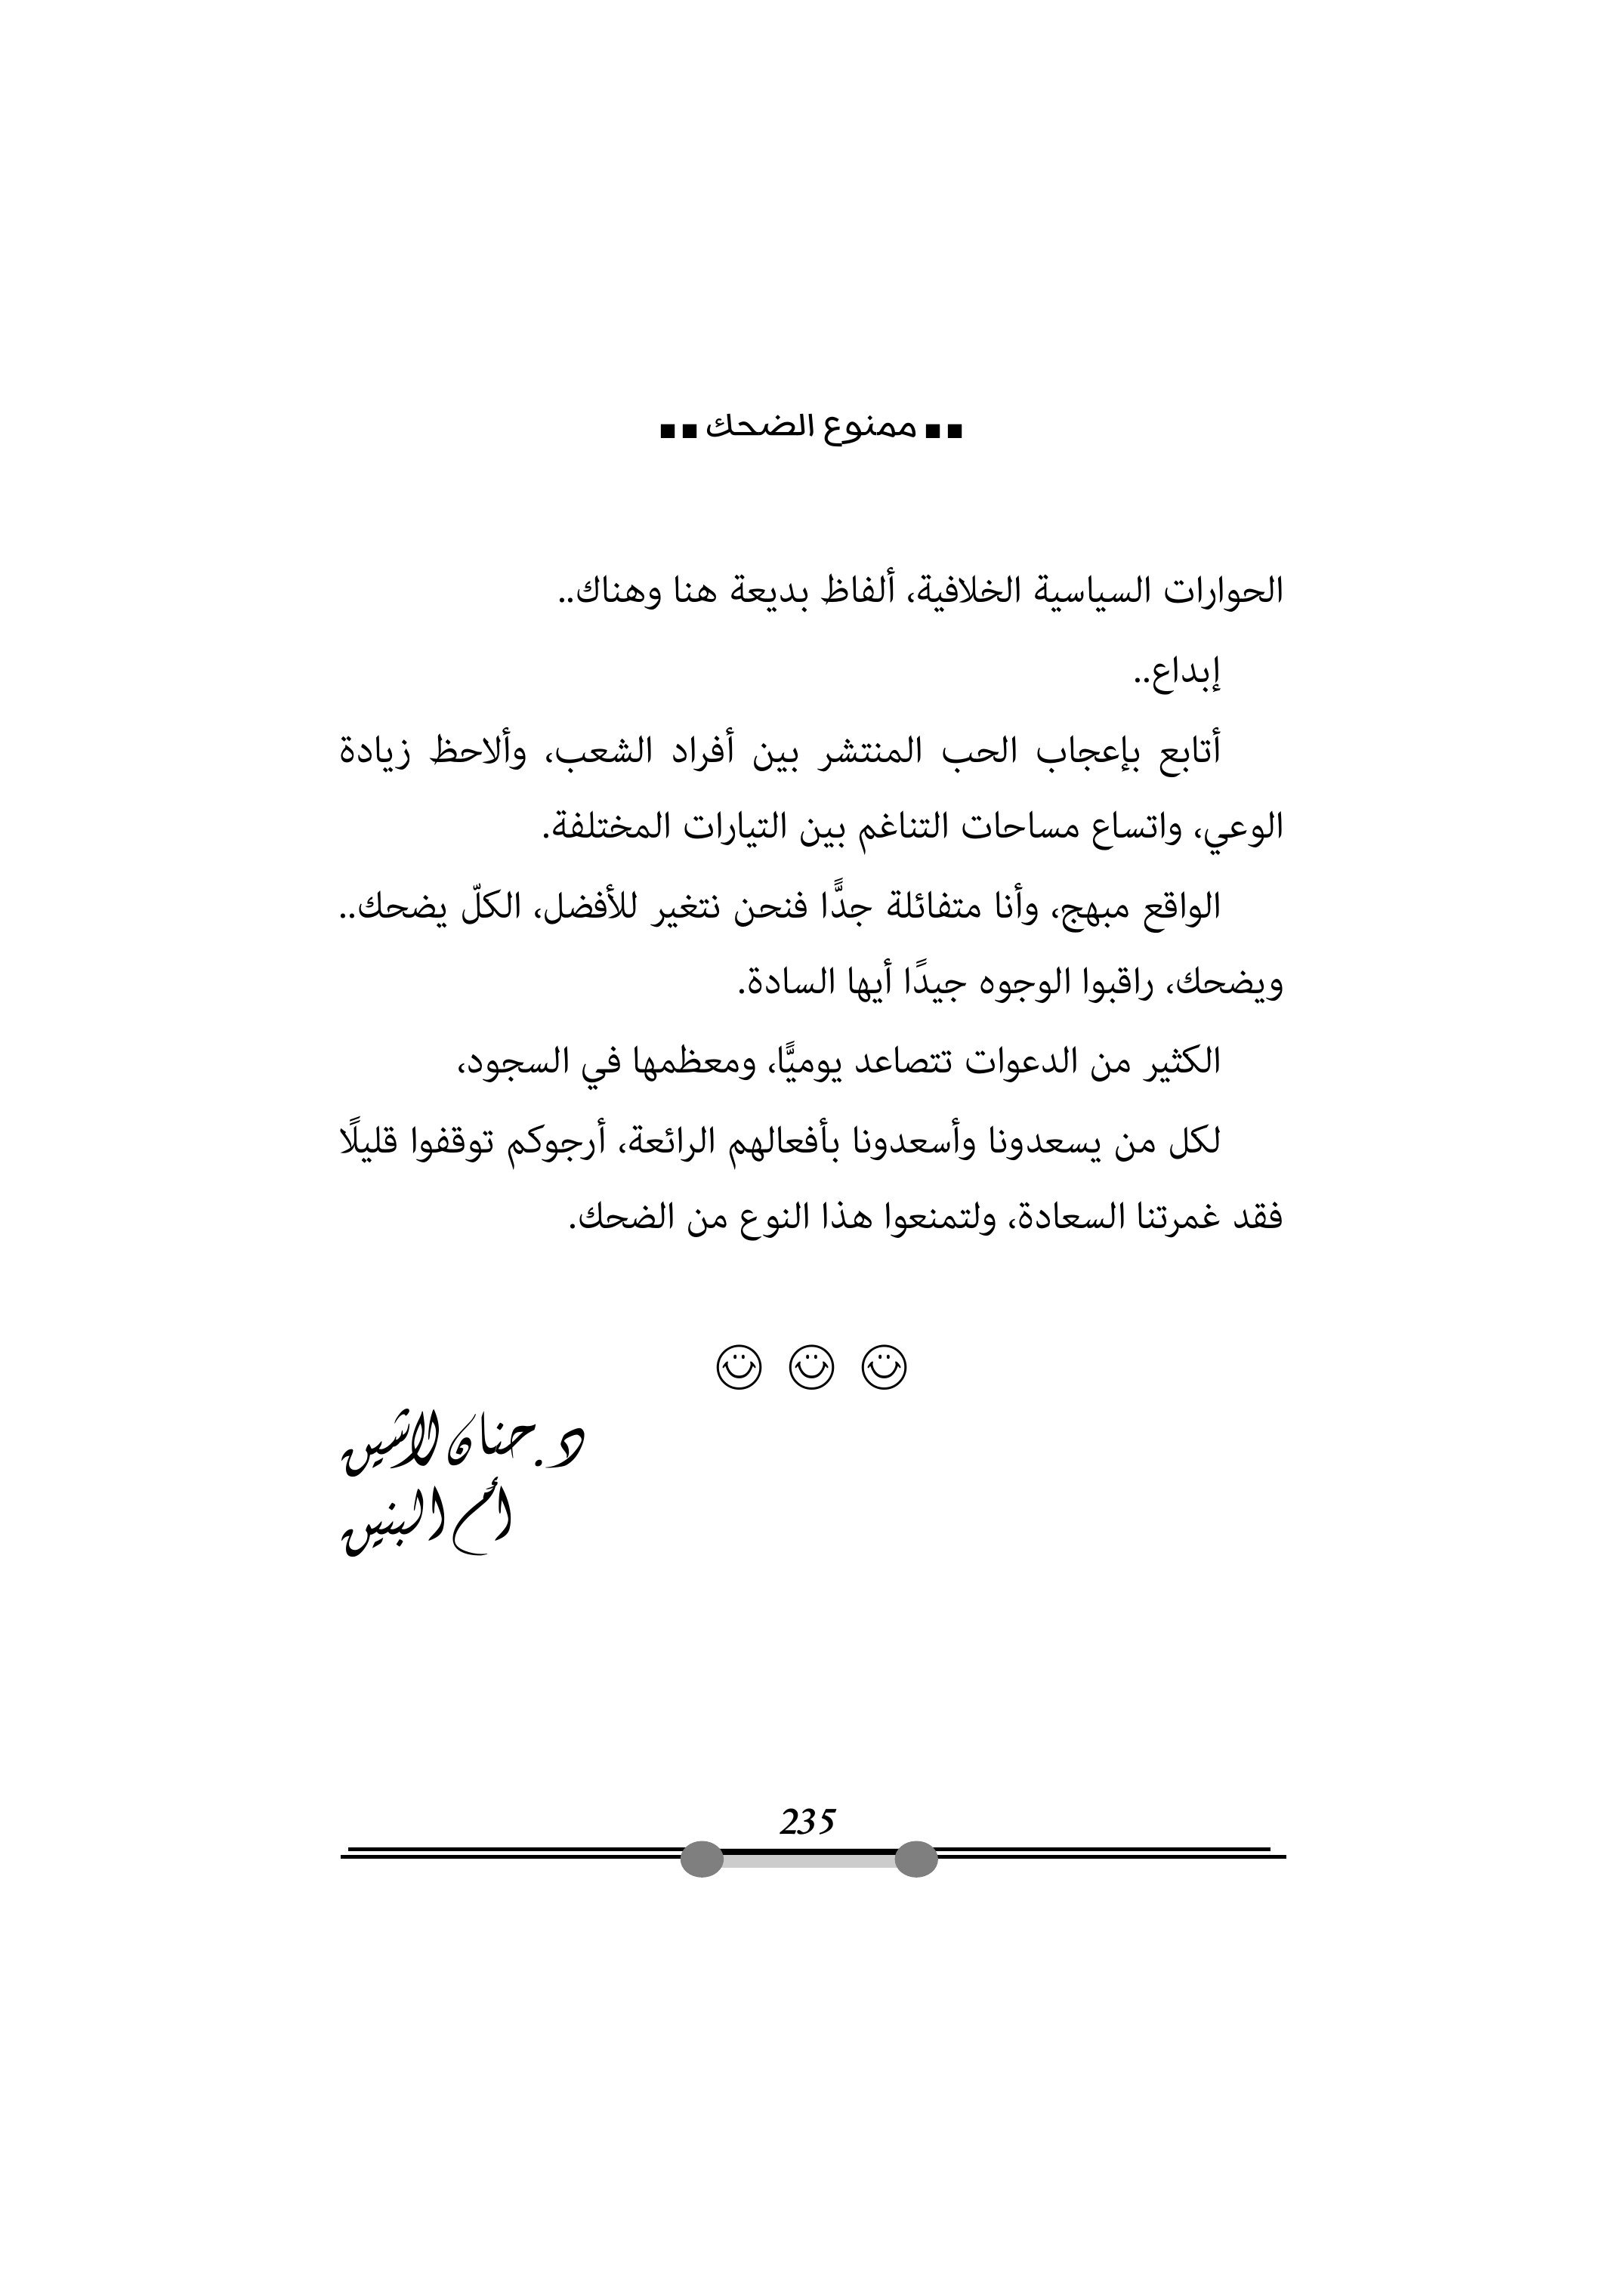 ▪▪ ممنوع الضحك ▪▪
الحوارات السياسية الخلافية، ألفاظ بديعة هنا وهناك..
إبداع..
أتابع بإعجاب الحب المنتشر بين أفراد الشعب، وألاحظ زيادة
الوعي، واتساع مساحات التناغم بين التيارات المختلفة.
الواقع مبهج، وأنا متفائلة جدًّا فنحن نتغير للأفضل، الكلّ يضحك..
ويضحك، راقبوا الوجوه جيدًا أيها السادة.
الكثير من الدعوات تتصاعد يوميًّا، ومعظمها في السجود،
لكل من يسعدونا وأسعدونا بأفعالهم الرائعة، أرجوكم توقفوا قليلًا
فقد غمرتنا السعادة، ولتمنعوا هذا النوع من الضحك.
☺ ☺ ☺
د. حنان لاشين
أم البنين
235